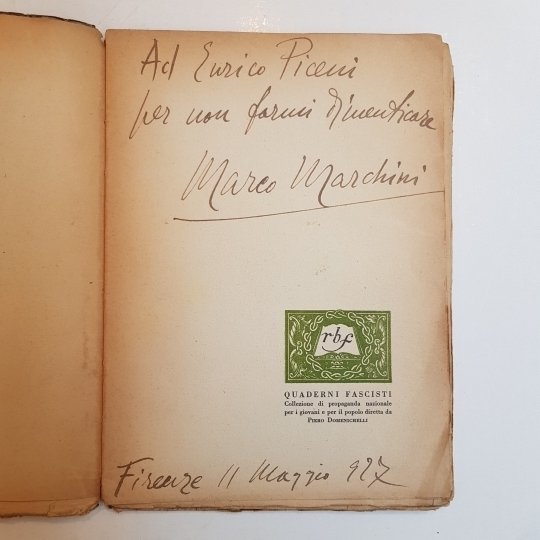 Ad Enrico Piceni
per non farmi dimenticare
Marco Marchini
rbf
QUADERNI FASCISTI
Collezione di propaganda nazionale
per i giovani e per il popolo diretta da
PIERO DOMENICHELLI
Firenze 11 Maggio 927